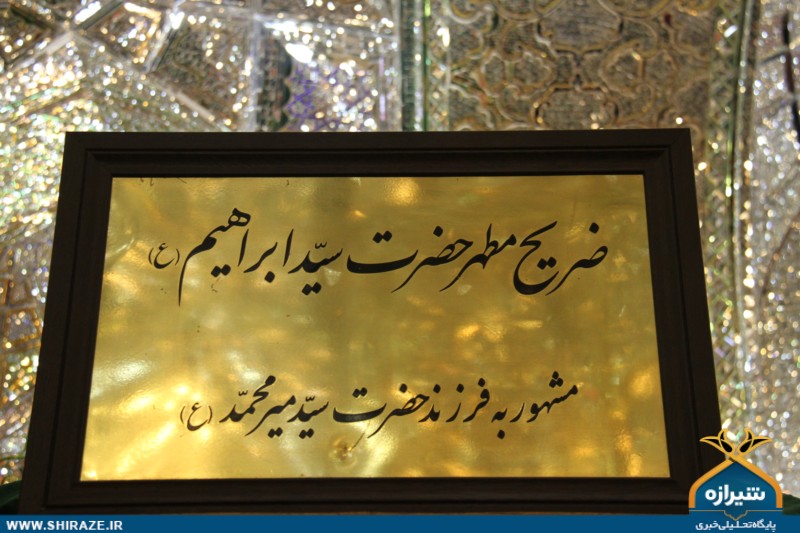 ضریح مطهر حضرت سیّد ابراهیم (ع)
مشهور به فرزند حضرت سیّد میر محمّد (ع)
شیرازه
پایگاه تحلیلی خبری
WWW.SHIRAZE.IR